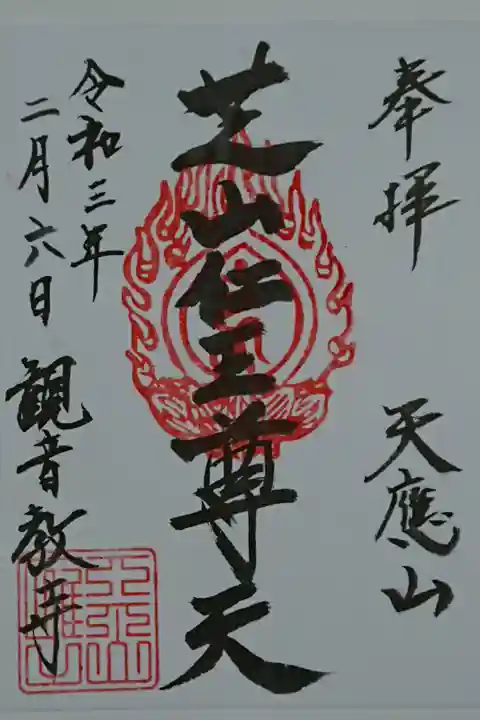 奉拝
天應山
芝山仁王尊天
令和三年
二月六日
観音教寺